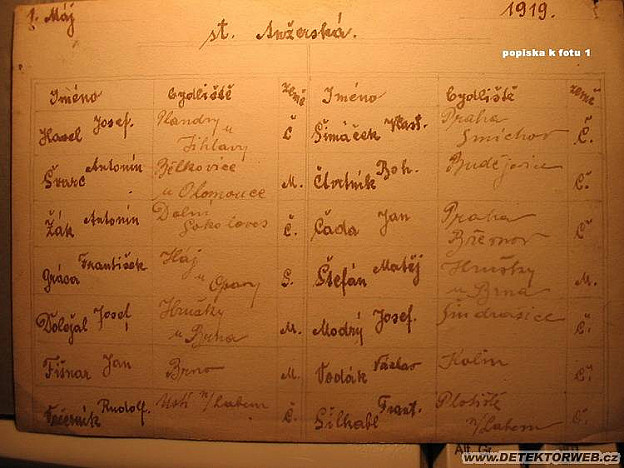 1. Máj 1919.
st. Anžerská.
popiska k fotu 1
Jméno Bydliště Země Jméno Bydliště Země
Havel Josef. Plandry u Jihlavy Č Šimáček Vlast. Praha Smíchov Č.
Švarc Antonín Bělkovice u Olomouce M. Čtvrtník Boh. Budějovice Č.
Žák Antonín Dolní Č. Čada Jan Praha Břevnov Č
František Háj u Opavy S. Štefan Matěj Hrušky u Brna M.
Doležal Josef Hrušky u Brna M. Modrý Josef. Č.
Fišnar Jan Brno M. Vodák Václav Kolín Č.
Večerník Rudolf. Ustí n/Labem Č. Frant. Plotiště n/Labem Č.
www.DETEKTORWEB.cz